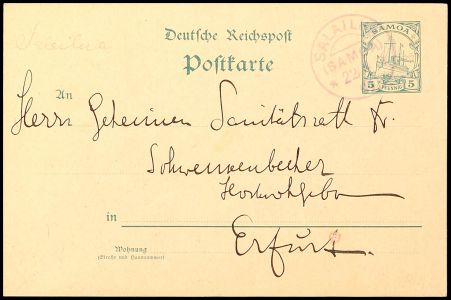 Deutsche Reichspost
Postkarte
SALAILUA
(SAMOA)
* 22
SAMOA
5 PFENNIG 5
Salailua
An
Herrn Geheimen Sanitätsrath Dr.
Schwenkenbecher
Hochwohlgebo
in Erfurt.
Wohnung
(Straße und Hausnummer)